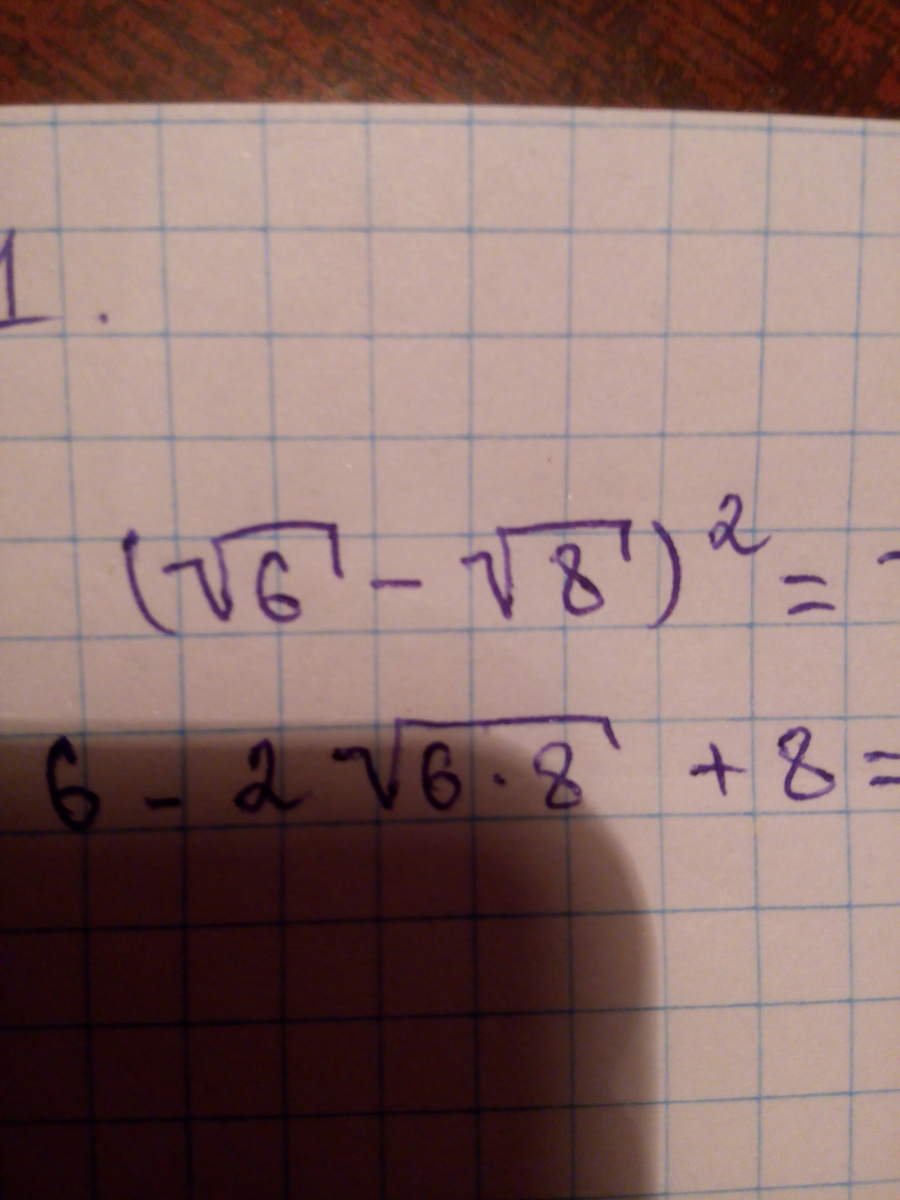 1.
(√6 - √8)² =
6 - 2√6·8 + 8 =